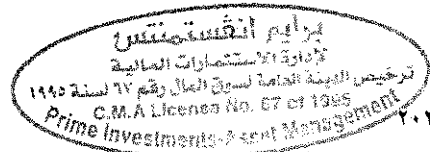 برايم انفستمنتس
لإدارة الاستثمارات المالية
ترخيص الهيئة العامة لسوق المال رقم ٦٧ لسنة ١٩٩٥
C.M.A License No. 67 of 1995
Prime Investments-Asset Management